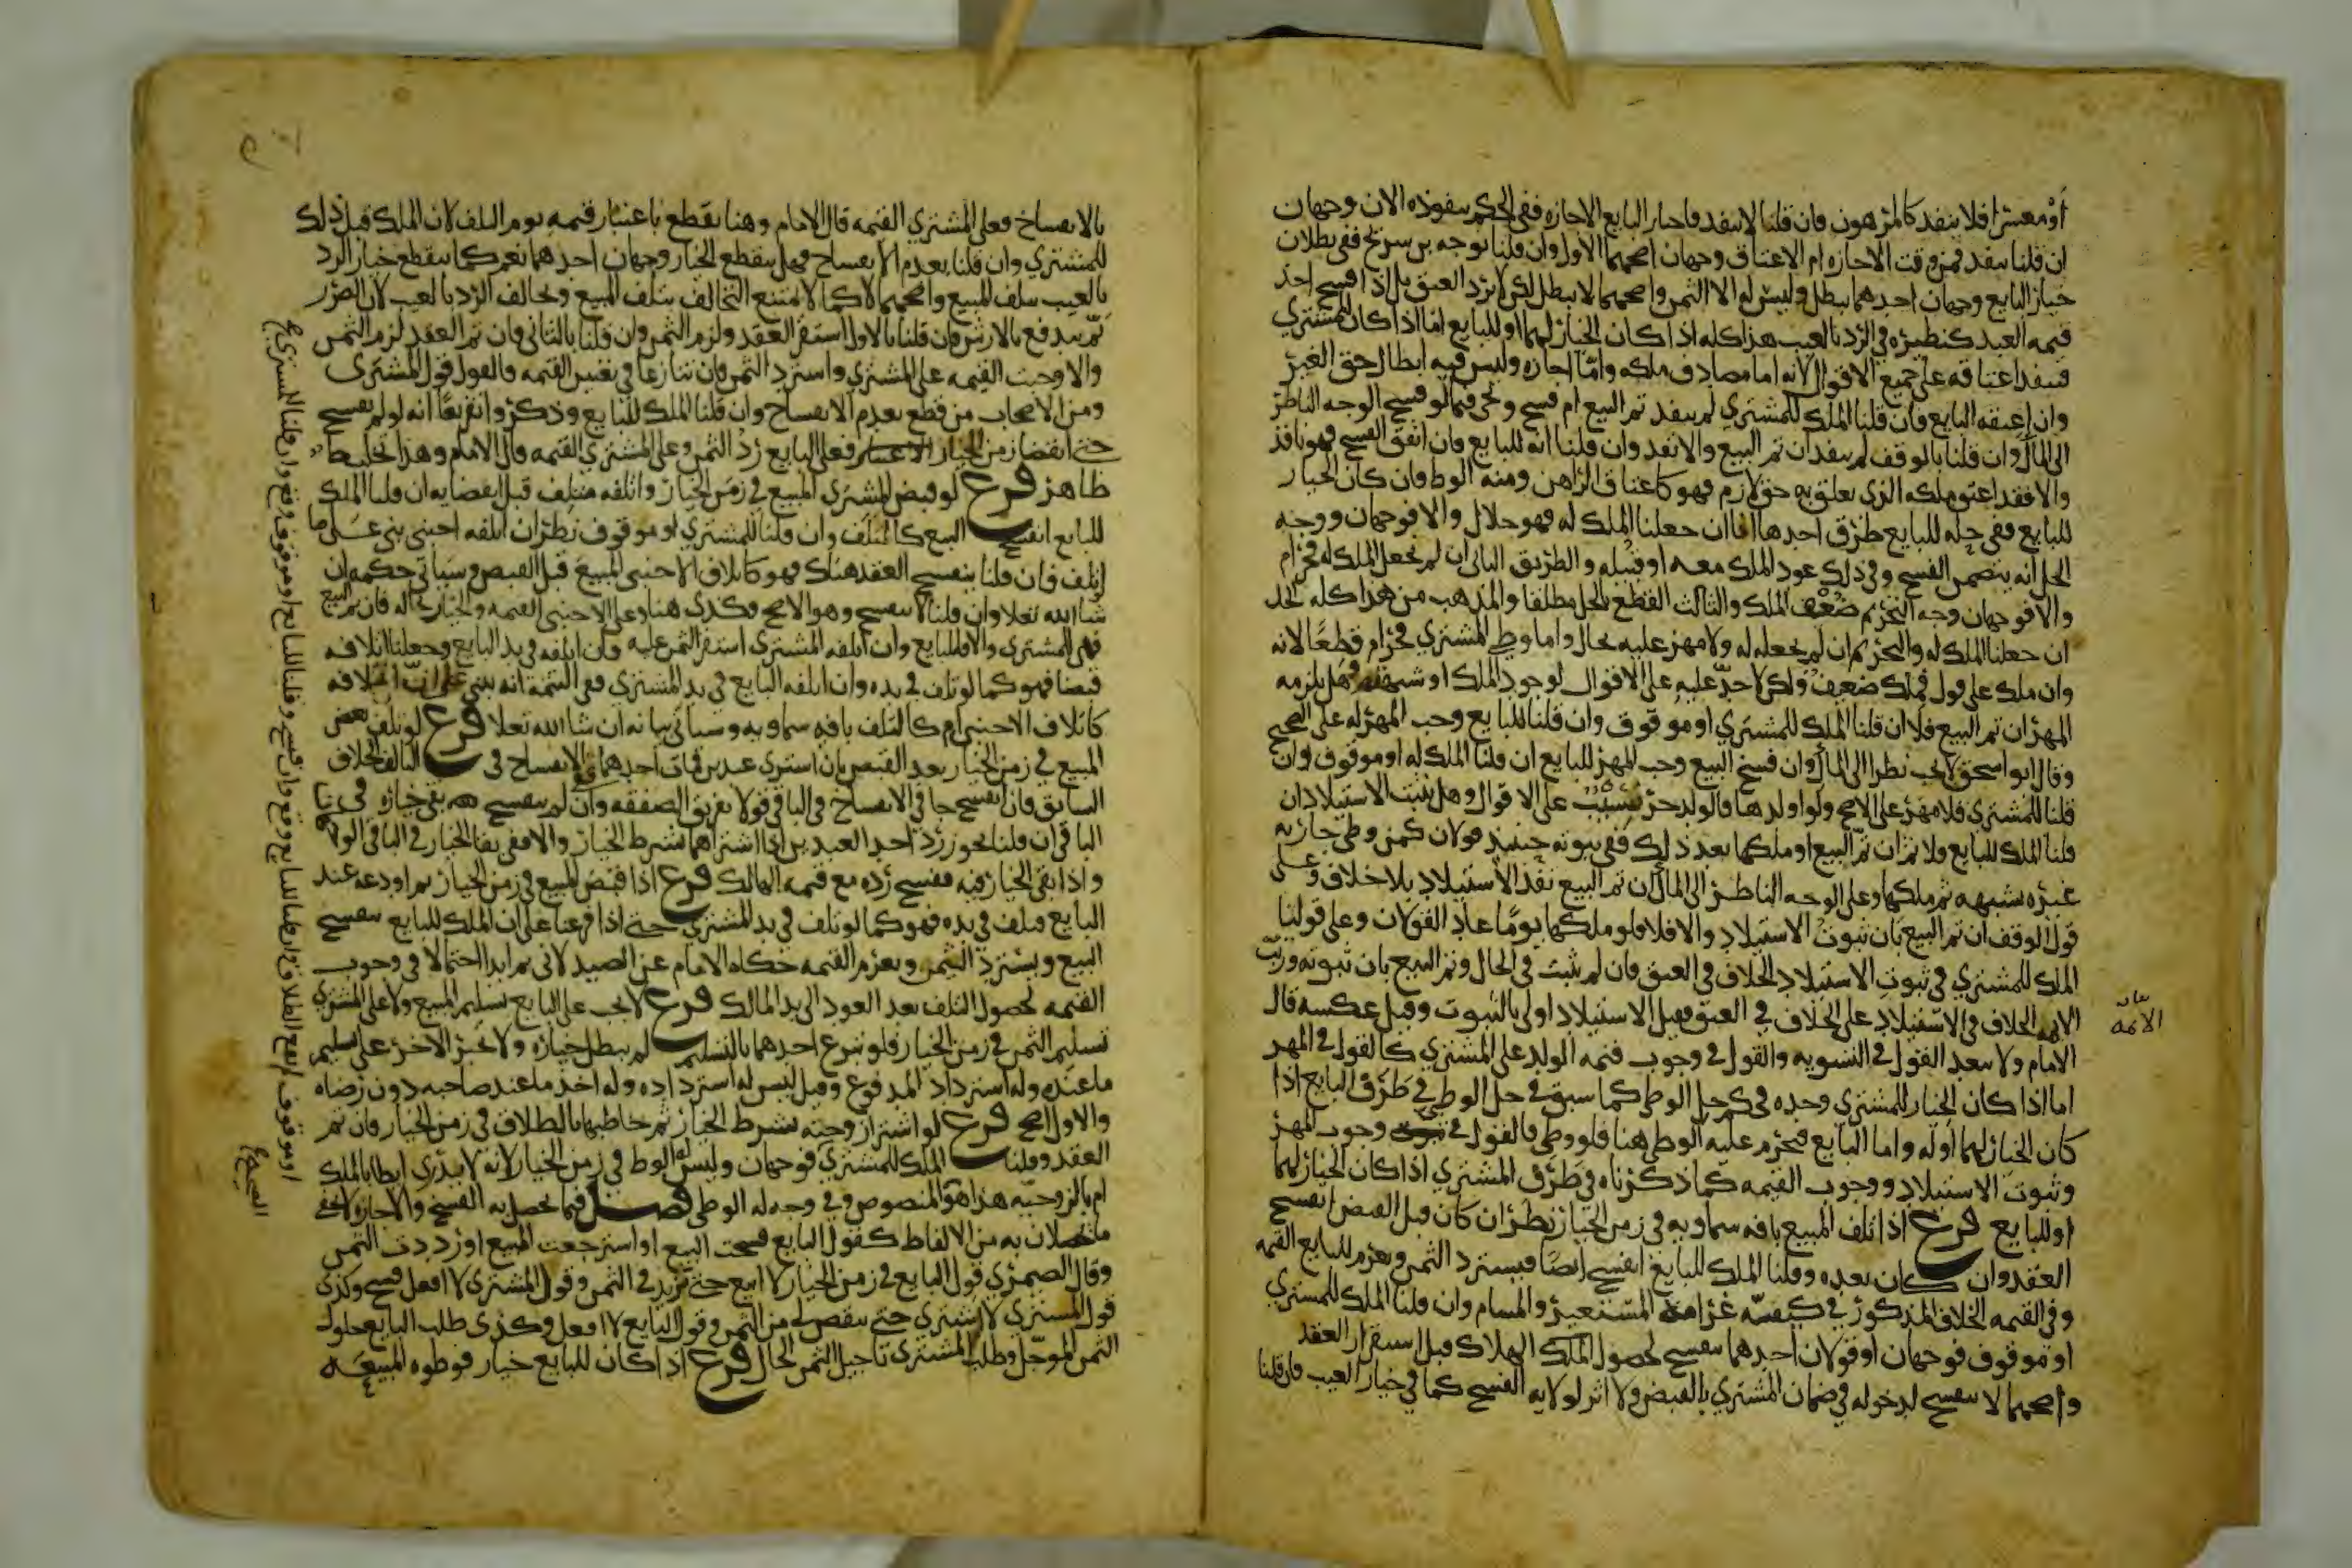 أو معسرا فلا ينفد كالمرهون فان قلنا لا ينفد فاختار البايع الاجازه ففي الحكم بنفوذه الان وجهان
ان قلنا ينفد فمن وقت الاجازه ام الاعتاق وجهان اصحهما الاول وان قلنا بوجه بن سريج ففي بطلان
خيار البايع وجهان احدهما يبطل وليس له الا الثمن واصحهما لا يبطل لكن لا يرد العتق بل اذا فسخ اخذ
قيمه العبد كنظيره في الرد بالعيب هذا كله اذا كان الخيار لهما او للبايع اما اذا كان للمشتري
فينفد اعتاقه على جميع الاقوال لانه اما مصادف ملكه واما اجازه وليس فيه ابطال حق الغير
وان اعتقه البايع فان قلنا الملك للمشتري لم ينفد تم البيع ام فسخ ونحى فيما لو فسخ الوجه الناظر
الى المآل وان قلنا بالوقف لم ينفد ان تم البيع والا نفد وان قلنا انه للبايع فان اتفق الفسخ فهو نافذ
والا فقد اعتق ملكه الذي تعلق به حق لازم فهو كاعتاق الراهن ومنه الوط فان كان الخيار
للبايع ففي حله للبايع طرق احدها انا ان جعلنا الملك له فهو حلال والا فوجهان ووجه
الحل انه يتضمن الفسخ وفي ذلك عود الملك معه او قبيله والطريق الثاني ان لم نجعل الملك له فحرام
والا فوجهان وجه التحريم ضعف الملك والثالث القطع بالحل مطلقا والمذهب من هذا كله الحل
ان جعلنا الملك له والتحريم ان لم نجعله له ولا مهر عليه بحال واما وطي المشتري فحرام قطعًا لانه
وان ملك على قول فملك ضعيف ولكن لا حدّ عليه على الاقوال لوجود الملك او شبهته وهل يلزمه
المهر ان تم البيع فلا ان قلنا الملك للمشتري او موقوف وان قلنا للبايع وجب المهر له على الصحيح
وقال ابو اسحق لا يجب نظرا الى المآل وان فسخ البيع وجب المهر للبايع ان قلنا الملك له او موقوف وان
قلنا للمشتري فلا مهر على الاصح ولو اولدها فالولد حر نسيب على الاقوال وهل يثبت الاستيلاد ان
قلنا الملك للبايع فلا ثم ان تم البيع او ملكها بعد ذلك ففي ثبوته حينيذ قولان كمن وطى جاريه
غيره بشبهه ثم ملكها وعلى الوجه الناظر الى المآل ان تم البيع نفد الاستيلاد بلا خلاف وعلى
قول الوقف ان تم البيع بان ثبوت الاستيلاد والا فلا فلو ملكها يومًا عاد القولان وعلى قولنا
الملك للمشتري في ثبوت الاستيلاد الخلاف في العتق فان لم يثبت في الحال وتم البيع بان ثبوته ورتب
الايمه الخلاف في الاستيلاد على الخلاف في العتق فقيل الاستيلاد اولى بالثبوت وقيل عكسه قال
الامام ولا يبعد القول في التسويه والقول في وجوب قيمه الولد على المشتري كالقول في المهر
اما اذا كان الخيار للمشتري وحده فحكم حل الوطي كما سبق في حل الوطي في طرف البايع اذا
كان الخيار لهما او له واما البايع فيحرم عليه الوطي هنا فلو وطي فالقول في وجوب المهر
وثبوت الاستيلاد ووجوب القيمه كما ذكرناه في طرف المشتري اذا كان الخيار لهما
او للبايع فرع اذا تلف المبيع بافه سماويه في زمن الخيار نظر ان كان قبل القبض انفسخ
العقد وان كان بعده وقلنا الملك للبايع انفسخ ايضًا فيسترد الثمن ويغرم للبايع القيمه
وفي القيمه الخلاف المذكور في كيفيّه غرامه المستعير والمستام وان قلنا الملك للمشتري
او موقوف فوجهان او قولان احدهما ينفسخ لحصول الهلاك قبل استقرار العقد
واصحهما لا ينفسخ لدخوله في ضمان المشتري بالقبض ولا اثر لولايه الفسخ كما في خيار العيب فان قلنا
بيان
الائمه
بالانفساخ فعلى المشتري القيمه قال الامام وهنا يقطع باعتبار قيمه يوم التلف لان الملك قبل ذلك
للمشتري وان قلنا بعدم الانفساخ فهل ينقطع الخيار وجهان احدهما نعم كما ينقطع خيار الرد
بالعيب بتلف المبيع واصحهما لا كما لا يمتنع التحالف بتلف المبيع وتخالف الرد بالعيب لان الضرر
ثمّ يندفع بالارش فان قلنا بالاول استقر العقد ولزم الثمن وان قلنا بالثاني فان تم العقد لزم الثمن
والا وجبت القيمه على المشتري واسترد الثمن فان تنازعا في نفس القيمه فالقول قول المشترى
ومن الاصحاب من قطع بعدم الانفساخ وان قلنا الملك للبايع وذكروا تفريعًا انه لو لم يفسخ
حتى انقضا زمن الخيار فعلى البايع رد الثمن وعلى المشتري القيمه قال الامام وهذا تخليط
ظاهر فرع لو قبض المشتري المبيع في زمن الخيار واتلفه متلف قبل انقضايه ان قلنا الملك
للبايع انفسخ البيع كالتلف وان قلنا للمشتري او موقوف نظر ان اتلفه اجنبي بني على ما
اتلف فان قلنا ينفسخ العقد هناك فهو كاتلاف الاجنبي المبيع قبل القبض وسياتي حكمه ان
شا الله تعلا وان قلنا لا ينفسخ وهو الاصح وكذى هنا وعلى الاجنبي القيمه والخيار بحاله فان تم البيع
فهي للمشتري والا فللبايع وان اتلفه المشتري استقر الثمن عليه فان اتلفه في يد البايع وجعلنا اتلافه
قبضا فهو كما لو تلف في يده وان اتلفه البايع في يد المشتري ففي التتمة انه يبنى على ان اتلافه
كاتلاف الاجنبي ام كالتلف بافه سماويه وسياتي بيانه ان شا الله تعلا فرع لو تلف بعض
المبيع في زمن الخيار بعد القبض بان اشترى عبدين فمات احدهما ففي الانفساخ في التالف الخلاف
السابق فان انفسخ جا في الانفساخ في الباقي قولا تفريق الصفقه وان لم ينفسخ بقي خياره في
الباقي ان قلنا يجوز رد احد العبدين اذا اشتراهما بشرط الخيار والا ففي بقا الخيار في الباقي الوجهان
واذا بقي الخيار فيه ففسخ رده مع قيمه الهالك فرع اذا قبض المبيع في زمن الخيار ثم اودعه عند
البايع فتلف في يده فهو كما لو تلف في يد المشتري حتى اذا فرعنا على ان الملك للبايع ينفسخ
البيع ويسترد الثمن ويغرم القيمه حكاه الامام عن الصيدلاني ثم ابدا احتمالا في وجوب
القيمه لحصول التلف بعد العود الى يد المالك فرع لا يجب على البايع تسليم المبيع ولا على المشتري
تسليم الثمن في زمن الخيار فلو تبرع احدهما بالتسليم لم يبطل خياره ولا يجبر الاخر على تسليم
ما عنده وله استرداد المدفوع وقيل ليس له استرداده وله اخذ ما عند صاحبه دون رضاه
والاول اصح فرع لو اشترا زوجته بشرط الخيار ثم خاطبها بالطلاق في زمن الخيار فان تم
العقد وقلنا الملك للمشتري فوجهان وليس له الوط في زمن الخيار لانه لا يدري ايطا بالملك
ام بالزوجيّه هذا هو المنصوص وفي وجه له الوطي فصل فيما يحصل به الفسخ والاجازه لا يخفى
ما يحصلان به من الالفاظ كقول البايع فسخت البيع او استرجعت المبيع او رددت الثمن
وقال الصيمري قول البايع في زمن الخيار لا ابيع حتى تزيد في الثمن وقول المشتري لا افعل فسخ وكذى
قول المشتري لا اشتري حتى ينقص لي من الثمن وقول البايع لا افعل وكذى طلب البايع حلول
الثمن المؤجّل وطلب المشتري تاجيل الثمن الحال فرع اذا كان للبايع خيار فوطوه المبيعه